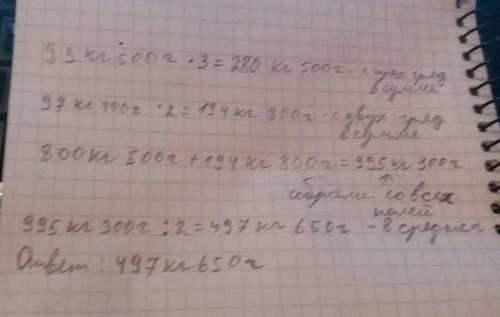 93 кг 500г · 3 = 280 кг 500г - с трёх гряд
в сумме
97 кг 400г · 2 = 194 кг 800г - с двух гряд
в сумме
800кг 500г + 194 кг 800г = 995 кг 300г
собрали со всех
полей
995 кг 300г : 2 = 497 кг 650г - в среднем
Ответ: 497 кг 650г